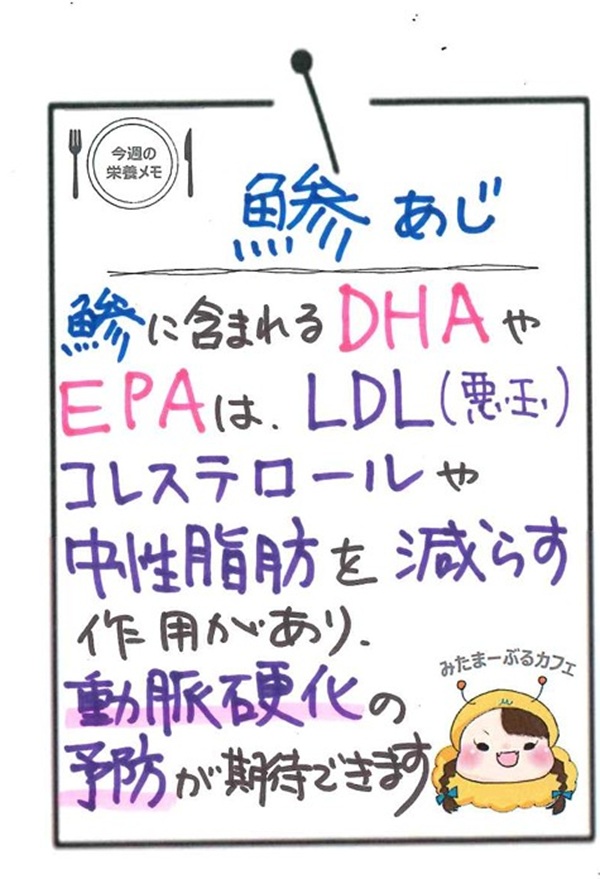 今週の
栄養メモ
鯵 あじ
鯵に含まれるDHAや
EPAは、LDL(悪玉)
コレステロールや
中性脂肪を減らす
作用があり、
動脈硬化の
予防が期待できます
みたまーぶるカフェ